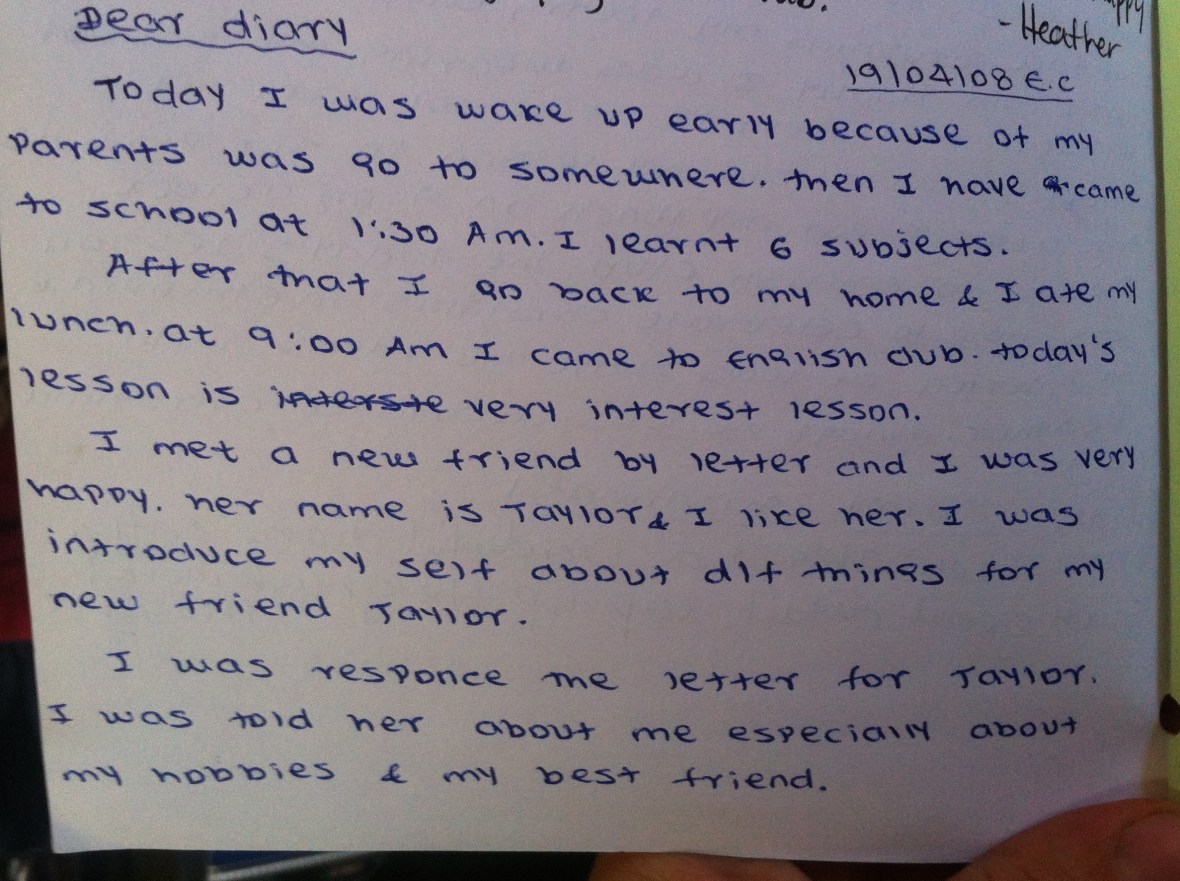 ppy
- Heather
Dear diary
19/04/08 E.C
Today I was wake up early because of my
parents was go to somewhere. then I have came
to school at 1:30 Am. I learnt 6 subjects.
After that I go back to my home & I ate my
lunch. at 9:00 Am I came to English club. today's
lesson is interste very interest lesson.
I met a new friend by letter and I was very
happy. her name is Taylor & I like her. I was
introduce my self about dif things for my
new friend Taylor.
I was responce the letter for Taylor.
I was told her about me especially about
my hobbies & my best friend.